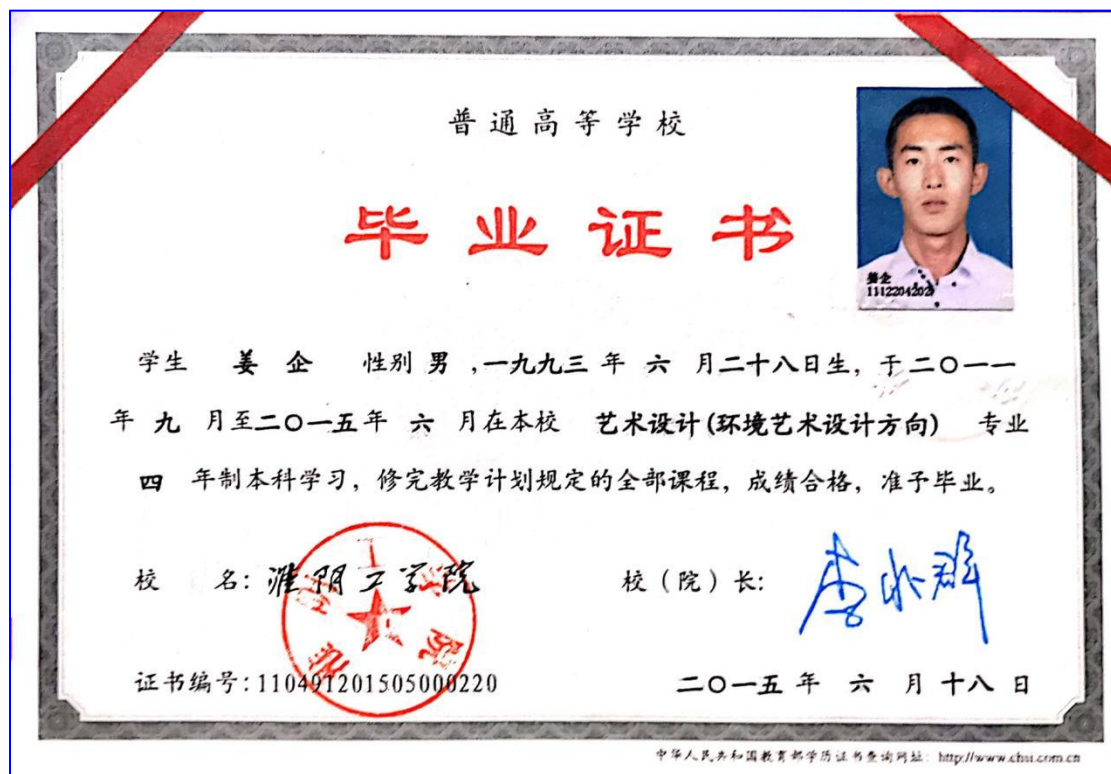 普通高等学校
毕业证书
姜企
1112204202
学生 姜企 性别 男 ,一九九三 年 六 月二十八日生, 于二〇一一
年 九 月至二〇一五年 六 月在本校 艺术设计(环境艺术设计方向) 专业
四 年制本科学习, 修完教学计划规定的全部课程, 成绩合格, 准予毕业。
校 名: 淮阴工学院 校(院)长:
淮阴工学院
证书编号: 110491201505000220 二〇一五 年 六 月 十八 日
中华人民共和国教育部学历证书查询网址: http://www.chsi.com.cn